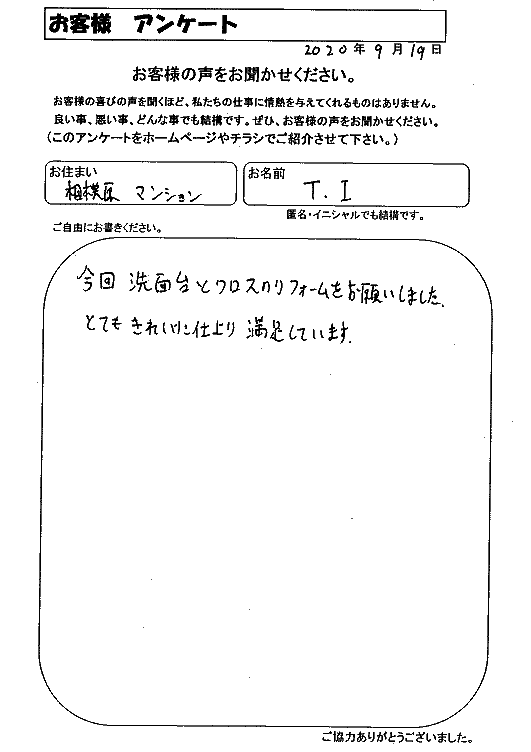 お客様 アンケート
2020年9月19日
お客様の声をお聞かせください。
お客様の喜びの声を聞くほど、私たちの仕事に情熱を与えてくれるものはありません。
良い事、悪い事、どんな事でも結構です。ぜひ、お客様の声をお聞かせください。
(このアンケートをホームページやチラシでご紹介させて下さい。)
お住まい
相模原 マンション
お名前
T. I
匿名・イニシャルでも結構です。
ご自由にお書きください。
今回 洗面台とクロスのリフォームをお願いしました.
とても きれいに仕上り 満足しています.
ご協力ありがとうございました。